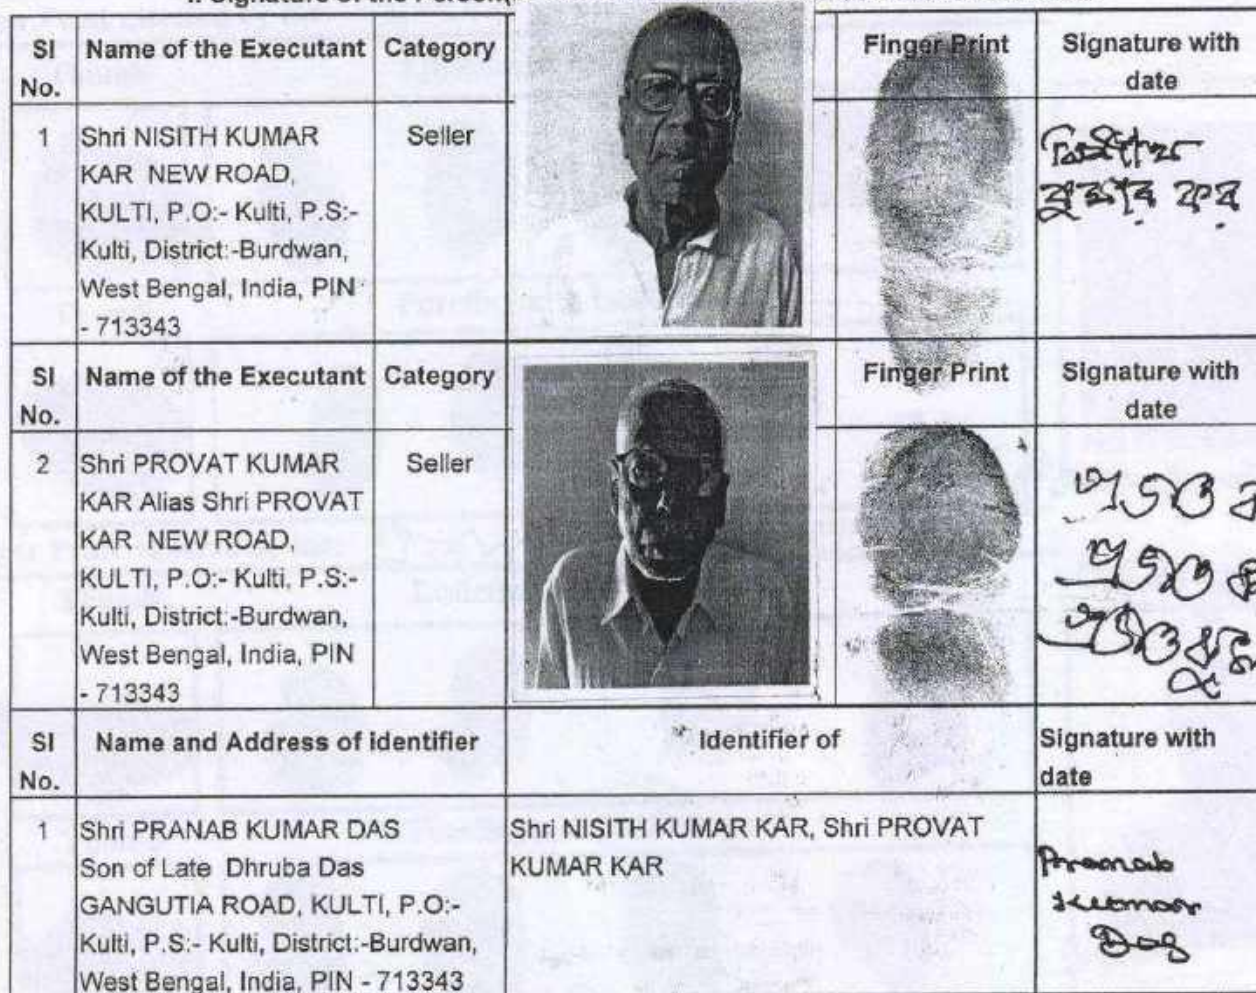 SI No. Name of the Executant Category Finger Print Signature with date
1 Shri NISITH KUMAR Seller
KAR NEW ROAD,
KULTI, P.O:- Kulti, P.S:-
Kulti, District:-Burdwan,
West Bengal, India, PIN
- 713343
SI No. Name of the Executant Category Finger Print Signature with date
2 Shri PROVAT KUMAR Seller
KAR Alias Shri PROVAT
KAR NEW ROAD,
KULTI, P.O:- Kulti, P.S:-
Kulti, District:-Burdwan,
West Bengal, India, PIN
- 713343
SI No. Name and Address of identifier Identifier of Signature with date
1 Shri PRANAB KUMAR DAS
Son of Late Dhruba Das
GANGUTIA ROAD, KULTI, P.O:-
Kulti, P.S:- Kulti, District:-Burdwan,
West Bengal, India, PIN - 713343
Shri NISITH KUMAR KAR, Shri PROVAT
KUMAR KAR
Pranab
Kumar
Das